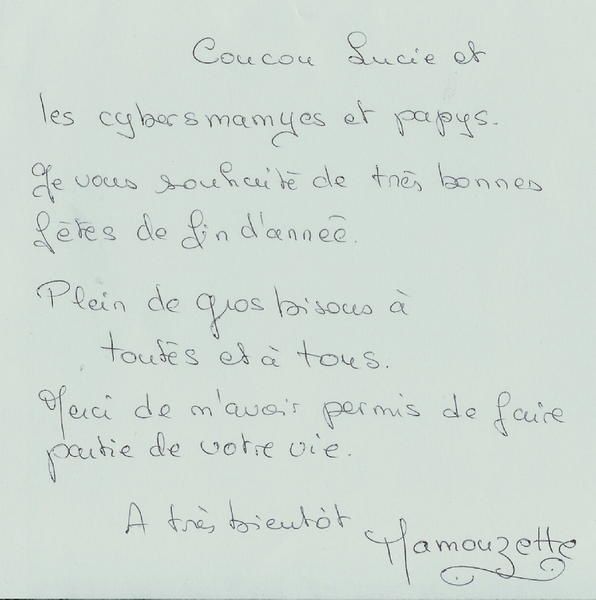 Coucou Lucie et
les cybersmamyes et papys.
Je vous souhaitê de três bonnes
fêtes de fin d'anneê.
Plein de gros bisous à
toutês et à tous.
Merci de m'avoir permis de faire
partie de votre vie.
A três bientôt Mamouzette